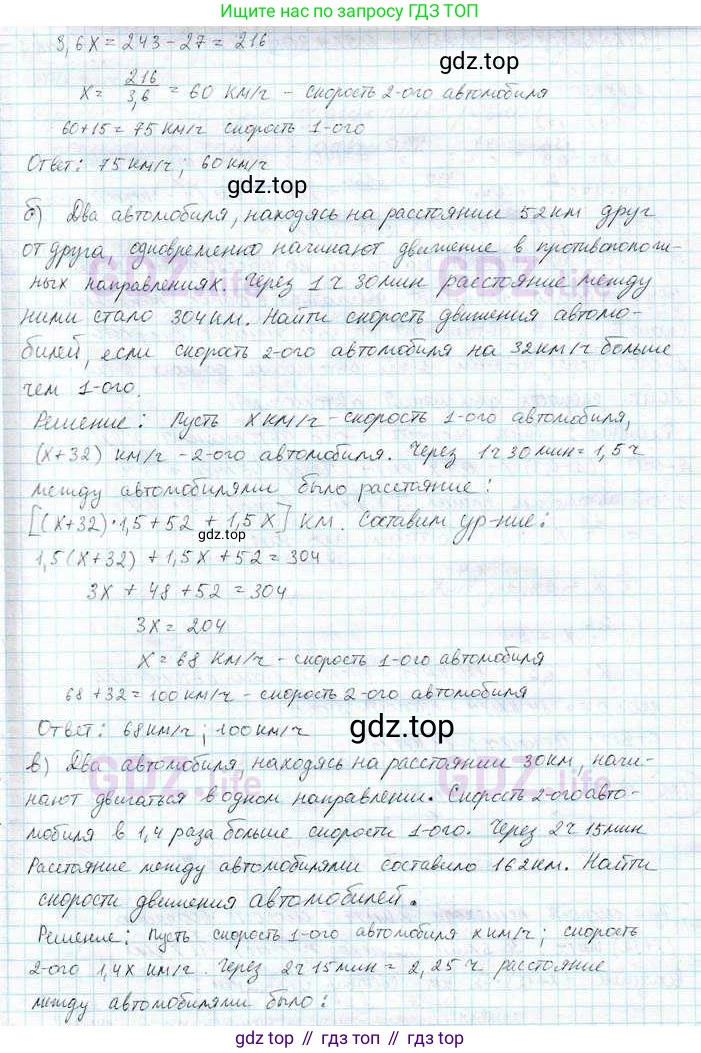 Ищите решения по запросу ГДЗ ТОП
3,6x = 243 - 27 = 216
gdz.top
x = 216/3,6 = 60 км/ч - скорость 2-ого автомобиля
60+15 = 75 км/ч скорость 1-ого
Ответ: 75 км/ч; 60 км/ч
gdz.top
б) Два автомобиля, находясь на расстоянии 52 км друг
от друга, одновременно начинают движение в противополож-
ных направлениях. Через 1 ч 30 мин расстояние между
ними стало 304 км. Найти скорость движения автомо-
билей, если скорость 2-ого автомобиля на 32 км/ч больше
чем 1-ого.
Решение: Пусть x км/ч - скорость 1-ого автомобиля,
(x+32) км/ч - 2-ого автомобиля. Через 1ч 30 мин = 1,5 ч
между автомобилями было расстояние:
[(x+32)·1,5+52 + 1,5x] км. Составим ур-ние:
gdz.top
1,5(x+32) + 1,5x + 52 = 304
3x + 48 + 52 = 304
3x = 204
x = 68 км/ч - скорость 1-ого автомобиля
68 + 32 = 100 км/ч - скорость 2-ого автомобиля
Ответ: 68 км/ч; 100 км/ч
gdz.top
в) Два автомобиля, находясь на расстоянии 30 км, начи-
нают двигаться в одном направлении. Скорость 2-ого авто-
мобиля в 1,4 раза больше скорости 1-ого. Через 2 ч 15 мин
Расстояние между автомобилями составило 162 км. Найти
скорости движения автомобилей.
Решение: Пусть скорость 1-ого автомобиля x км/ч; скорость
2-ого 1,4x км/ч. Через 2ч 15 мин = 2,25 ч расстояние
между автомобилями было:
GDZ.life
GDZ.life
GDZ.life
GDZ.life
gdz.top // гдз топ // gdz top // гдз.топ